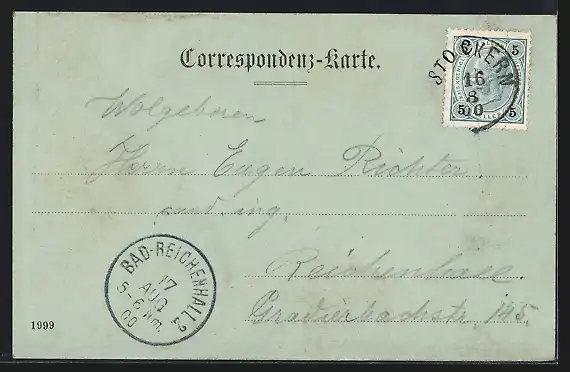 Correspondenz-Karte.
5 5
5 5
STOCKERN
16
8
00
Wolgeboren
Herrn Eugen Richter.
Reichenhall.
145.
BAD-REICHENHALL 2
17
AUG
5-6 Nm.
00
1999